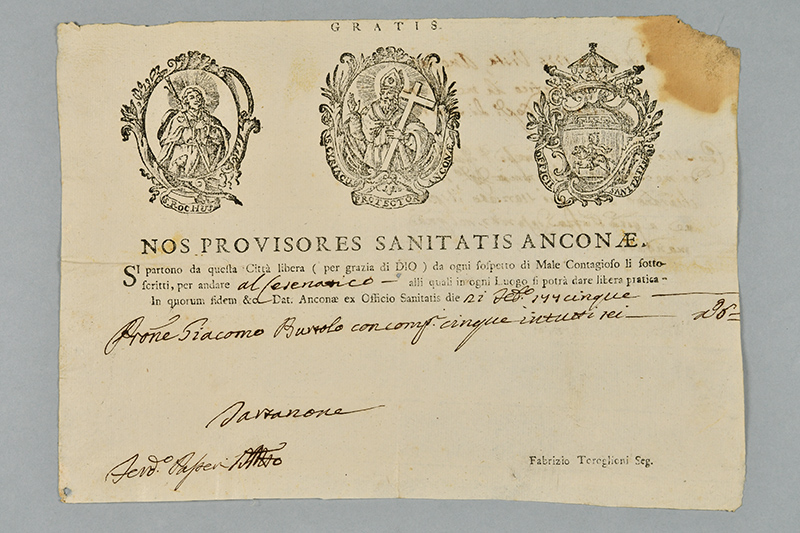 GRATIS.
S. ROCHUS
S. CYRIACUS PROTECTOR ANCONÆ
OFFICII SANITATIS
NOS PROVISORES SANITATIS ANCONÆ.
SI partono da questa Città libera ( per grazia di DIO ) da ogni sospetto di Male Contagioso li sotto-
scritti, per andare al Cesenatico — alli quali in ogni Luogo si potrà dare libera pratica -
In quorum fidem &c. Dat. Anconæ ex Officio Sanitatis die 21 cinque
Giacomo Burtolo con cinque in tutti sei
Fabrizio Toreglioni Seg.